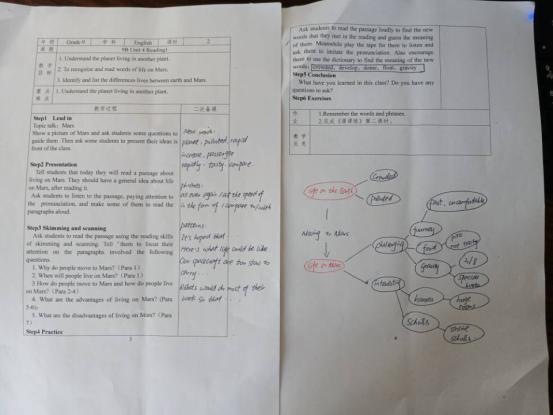 年级 Grade 9 学科 English 课时 2
课题 9B Unit 4 Reading1
教学目标
1. Understand the planet living in another plant.
2. To recognise and read words of life on Mars.
3. Identify and list the differences lives between earth and Mars.
重点难点
1. Understand the planet living in another plant.
教学过程 二次备课
Step1 Lead in
Topic talk: Mars
Show a picture of Mars and ask students some questions to
guide them. Then ask some students to present their ideas in
front of the class.
Step2 Presentation
Tell students that today they will read a passage about
living on Mars. They should have a general idea about life
on Mars, after reading it.
Ask students to listen to the passage, paying attention to
the pronunciation, and make some of them to read the
paragraphs aloud.
Step3 Skimming and scanning
Ask students to read the passage using the reading skills
of skimming and scanning. Tell them to focus their
attention on the paragraphs involved the following
questions.
1. Why do people move to Mars? (Para 1)
2. When will people live on Mars? (Para 1)
3 How do people move to Mars and how do people live
on Mars? (Para 2-4)
4. What are the advantages of living on Mars? (Para
5-6)
5. What are the disadvantages of living on Mars? (Para
7)
Step4 Practice
new words:
planet, polluted, rapid
increase, passenger
rapidly, tasty, compare
phrases:
at the speed of
in the form of compare to/with
patterns:
It's hoped that
Here's what life could be like
Our spacecraft are too slow to
carry...
Robots would do most of their
work so that ...
3
Ask students to read the passage loudly to find the new
words that they met in the reading and guess the meaning
of them. Meanwhile play the tape for them to listen and
ask them to imitate the pronunciation. Also encourage
them to use the dictionary to find the meaning of the new
words: crowded, develop, dinner, float, gravity
Step5 Conclusion
What have you learned in this class? Do you have any
questions to ask?
Step6 Exercises
作业
1.Remember the words and phrases.
2.完成《课课练》第二课时。
教学反思
life on the Earth
Crowded
polluted
Moving to Mars
life on Mars
challenging
journey
fast, uncomfortable
food
not tasty
gravity
3/8
special boots
interesting
homes
huge rooms
schools
online schools
4